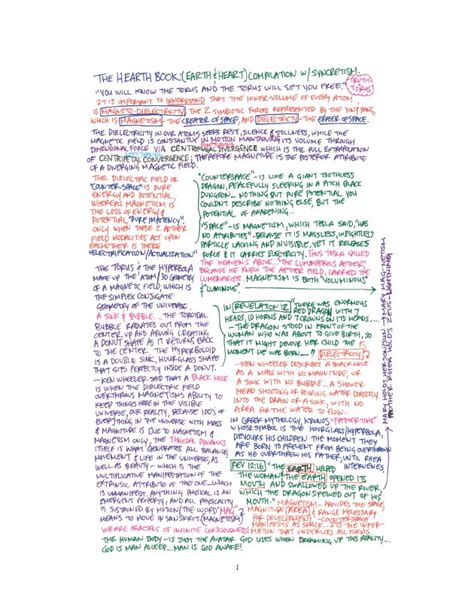 THE HEARTH BOOK: (EARTH & HEART) COMPILATION W/ SYNCRETISM.
"YOU WILL KNOW THE TORUS AND THE TORUS WILL SET YOU FREE.
TRUTH
TORUS
IT IS IMPORTANT TO UNDERSTAND THAT THE INNER-VOLUME OF EVERY ATOM,
IS MAGNETO-DIELECTRICITY, THE 2 SYMBIOTIC FORCES REPRESENTED BY THE YIN/YANG,
WHICH IS MAGNETISM - THE CREATER OF SPACE, AND DIELECTRICITY - THE ERASER OF SPACE.
THE DIELECTRICITY IN OUR ATOMS SEEKS REST, SILENCE & STILLNESS, WHILE THE
MAGNETIC FIELD IS CONSTANTLY IN MOTION MAINTAINING ITS VOLUME THROUGH
DIMENSIONAL FORCE VIA CENTRIFUGAL DIVERGENCE WHICH IS THE
OF CENTRIPETAL CONVERGENCE; THEREFORE MAGNITUDE IS THE POSTERIOR ATTRIBUTE
OF A DIVERGING MAGNETIC FIELD.
THE DIELECTRIC FIELD OR
"COUNTER-SPACE" IS PURE
ENERGY AND POTENTIAL,
WHEREAS MAGNETISM IS
THE LOSS OF ENERGY &
POTENTIAL "PURE IMPOTENCY".
ONLY WHEN THESE 2 AETHER
FIELD MODALITIES ACT UPON
EACHOTHER IS THERE
"ELECTRIFICATION/ACTUALIZATION"
THE TORUS & THE HYPERBOLA
MAKE UP THE "ATOM" 3D GEOMETRY
OF A MAGNETIC FIELD, WHICH IS
THE SIMPLEX CONJUGATE
GEOMETRY OF THE UNIVERSE.
A SINK & BUBBLE... THE TOROIDAL
BUBBLE RADIATES OUT FROM THE
CENTER, UP AND AROUND, CREATING
A DONUT SHAPE AS IT RETURNS BACK
TO THE CENTER. THE HYPERBOLOID
IS A DOUBLE SINK, HOURGLASS SHAPE
THAT SITS PERFECTLY INSIDE A DONUT.
- KEN WHEELER SAID THAT A BLACK HOLE
IS WHEN THE DIELECTRIC FIELD
OVERTHROWS MAGNETISMS ABILITY TO
KEEP THINGS HERE IN THE VISIBLE
UNIVERSE, OUR REALITY, BECAUSE LOTS OF
EVERYTHING IN THE UNIVERSE WITH MASS
& MAGNITUDE IS DUE TO MAGNETISM &
MAGNETISM ONLY. THE TOROIDAL DYNAMICS
ITSELF IS WHAT GENERATES ALL BALANCE,
MOVEMENT & LIFE IN THE UNIVERSE, AS
WELL AS BEAUTY - WHICH IS THE
MULTIPLICATIVE MANIFESTATION OF THE
EXTRINSIC ATTRIBUTE OF THE ONE... WHICH
IS UNMANIFEST. ANYTHING MATERIAL IS AN
EMERGENT PRIORITY, AND ALL PHYSICALITY
IS SUSTAINED BY MOTION (THE WORD "MAG"
MEANS TO MOVE IN SANSKRIT) (MAGNETISM)
WE ARE FRACTALS OF INFINITE CONSCIOUSNESS
"COUNTERSPACE" - IS LIKE A GIANT TOOTHLESS
DRAGON, PEACEFULLY SLEEPING IN A PITCH BLACK
DUNGEON... NOTHING BUT PURE POTENTIAL, YOU
COULDN'T DESCRIBE NOTHING ELSE, BUT THE
POTENTIAL OF AWAKENING...
"SPACE" - IS MAGNETISM, WHICH TESLA SAID, "HAS
NO ATTRIBUTES". BECAUSE IT IS MASSLESS, WEIGHTLESS
PARTICLE LACKING AND INVISIBLE, YET IT RELEASES
FORCE & IT CARRIES ELECTRICITY. THUS TESLA CALLED
THE HEAVENS ABOVE... "THE LUMINIFEROUS AETHER"
BECAUSE HE KNEW THE AETHER FIELD, CARRIED THE
LUMINARIES. MAGNETISM IS BOTH "VOLUMINOUS"
& "LUMINOUS"
IN REVELATION 12, "THERE WAS ENORMOUS
RED DRAGON WITH 7
HEADS, 10 HORNS AND 7 CROWNS ON ITS HEADS...
- THE DRAGON STOOD IN FRONT OF THE
WOMAN WHO WAS ABOUT TO GIVE BIRTH, SO
THAT IT MIGHT DEVOUR HER CHILD THE
MOMENT HE WAS BORN...." DIELECTRICITY
- KEN WHEELER DESCRIBES A BLACK HOLE
AS A MASS WITH NO MAGNITUDE, OR
A SINK WITH NO BUBBLE. A SHOWER
HEAD SHOOTING OR POURING WATER DIRECTLY
INTO THE DRAIN OF A SINK, WITH NO
AREA FOR THE WATER TO FLOW.
IN GREEK MYTHOLOGY, KRONOS "FATHER-TIME"
WHOSE SYMBOL IS THE HOURGLASS/HYPERBOLA
DEVOURS HIS CHILDREN THE MOMENT THEY
ARE BORN TO PREVENT FROM BEING OVERTHROWN
AS HE OVERTHROWN HIS FATHER, UNTIL RHEA
INTERVENES
REV 12:16 "THE EARTH HELPED
THE WOMAN & THE EARTH OPENED ITS
MOUTH AND SWALLOWED UP THE RIVER,
WHICH THE DRAGON SPEWED OUT OF HIS
MOUTH." MAGNETISM - PROVIDES THE SPACE,
MAGNITUDE (AREA) & RANGE NECESSARY
FOR DEVELOPMENT - COUNTERSPACE
MANIFESTS AS SPACE... IS THE
THAT UNDERLIES ALL OF THIS...
MARY HOLDS JESUS
MOTHER RHEA HOLDS ZEUS - LIGHTNING
THE HUMAN BODY - IS JUST THE AVATAR GOD USES WHEN DREAMING UP THIS REALITY...
GOD IS MAN ASLEEP... MAN IS GOD AWAKE!
1